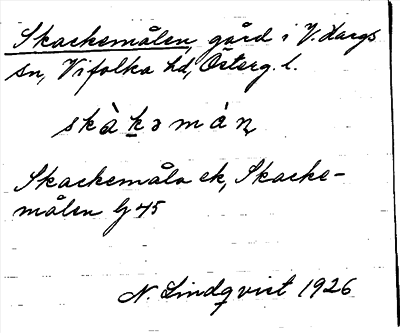 Skackemålen, gård i V. Hargs
sn, Vifolka hd, Österg. l.
skàkǝmȧn̥
Skackemåla ek, Skacke-
målen G 45
N. Lindqvist 1926